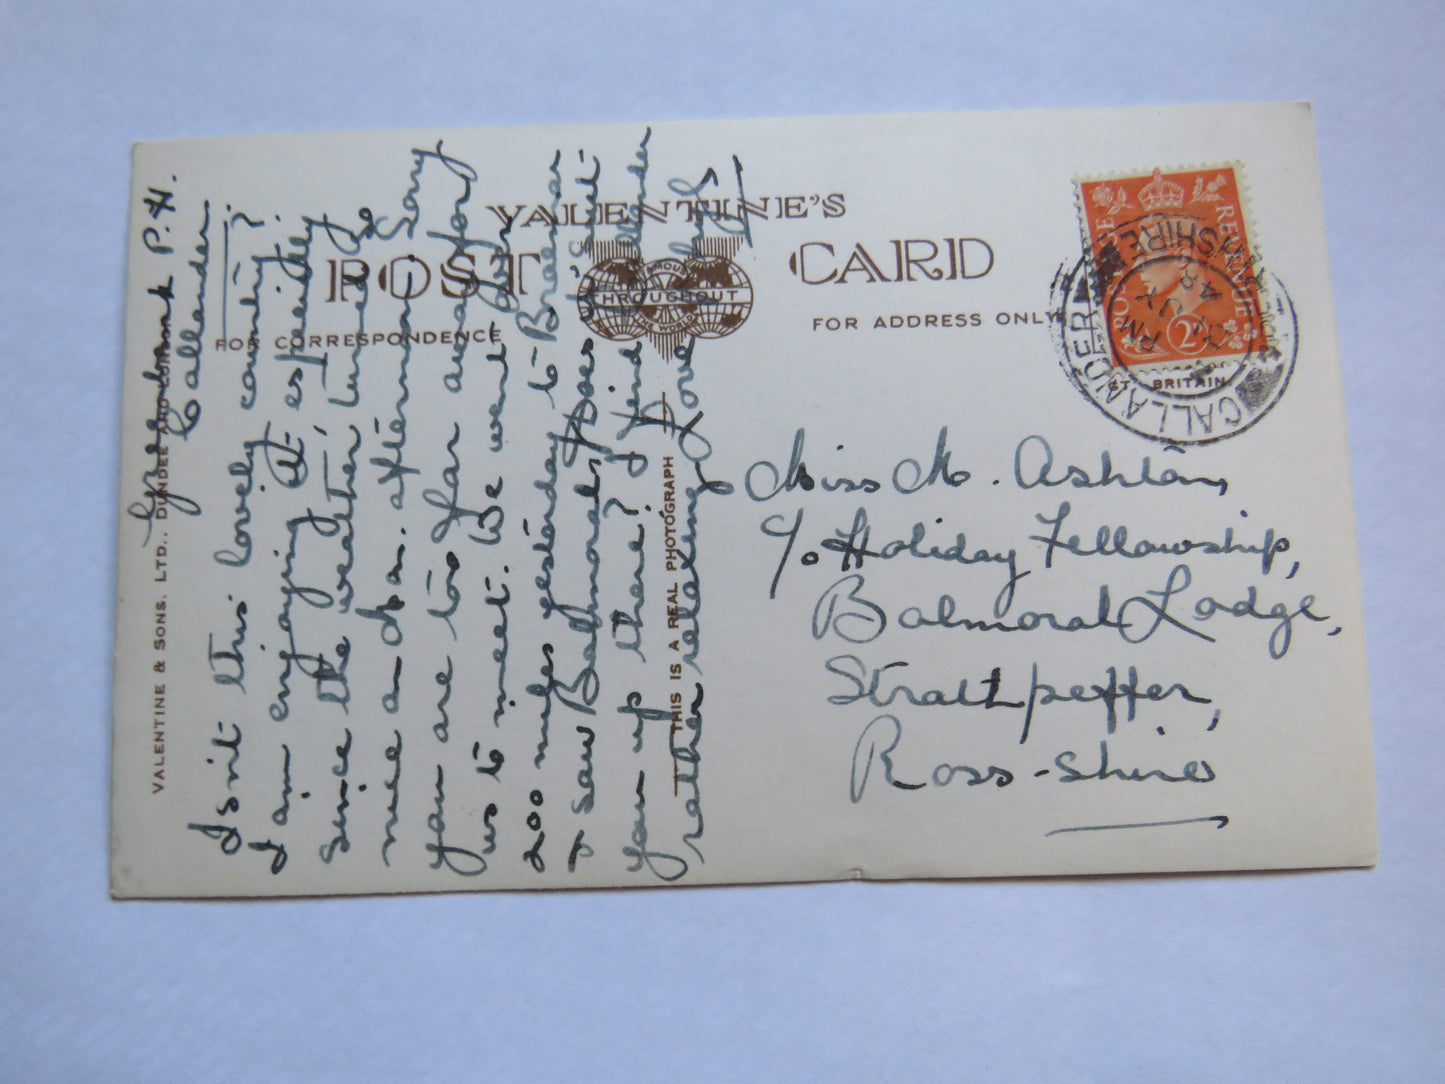 VALENTINE'S
POST CARD
FAMOUS
THROUGHOUT
THE WORLD
FOR CORRESPONDENCE
FOR ADDRESS ONLY
VALENTINE & SONS. LTD., DUNDEE AND LONDON
THIS IS A REAL PHOTOGRAPH
P.H.
Callander
Isn't this lovely country?
I am enjoying it especially
since the weather turned so
nice on Sun. afternoon. Sorry
you are too far away for
us to meet. We went for
200 miles yesterday to Braemar
& saw Balmoral. Does it suit
you up there? I find Callander
rather relaxing. Love
Miss M. Ashton,
c/o Holiday Fellowship,
Balmoral Lodge,
Strathpeffer,
Ross-shire
POSTAGE REVENUE
2
CALLANDER
PERTHSHIRE
PM
JY
ST. BRITAIN